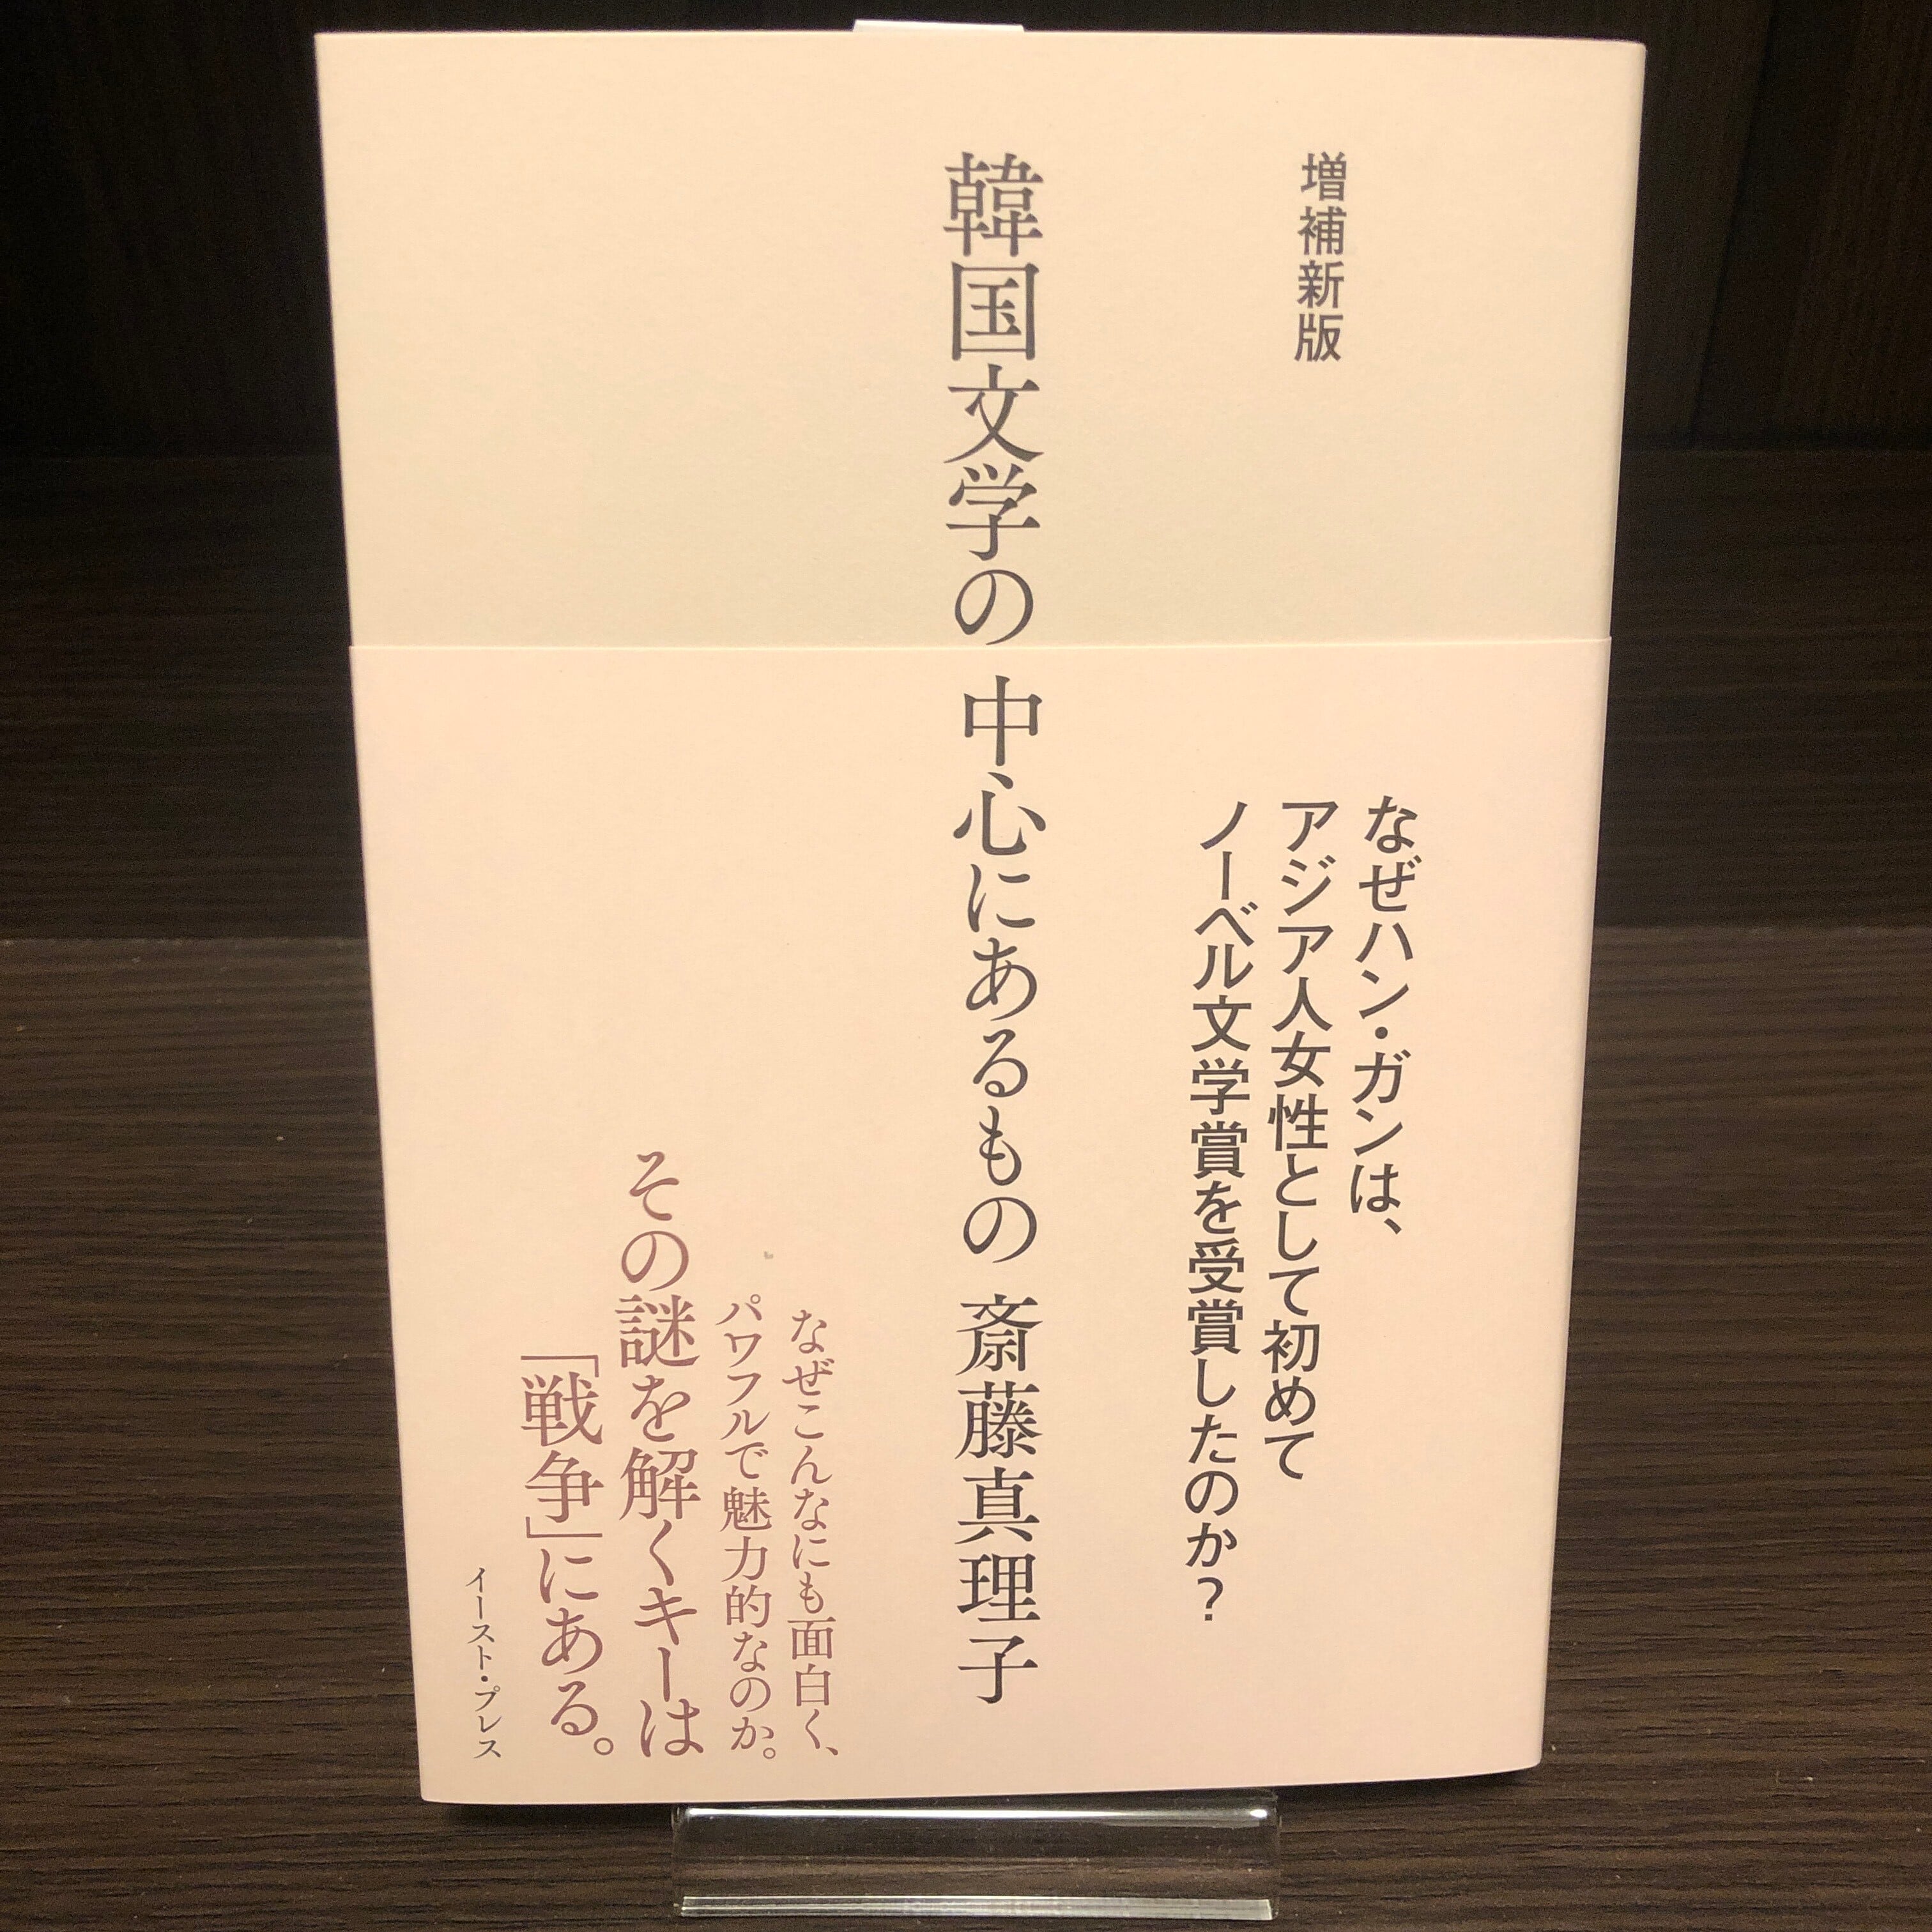 増補新版
なぜハン・ガンは、
アジア人女性として初めて
ノーベル文学賞を受賞したのか?
韓国文学の 中心にあるもの 斎藤真理子
なぜこんなにも面白く、
パワフルで魅力的なのか。
その謎を解くキーは
「戦争」にある。
イースト・プレス